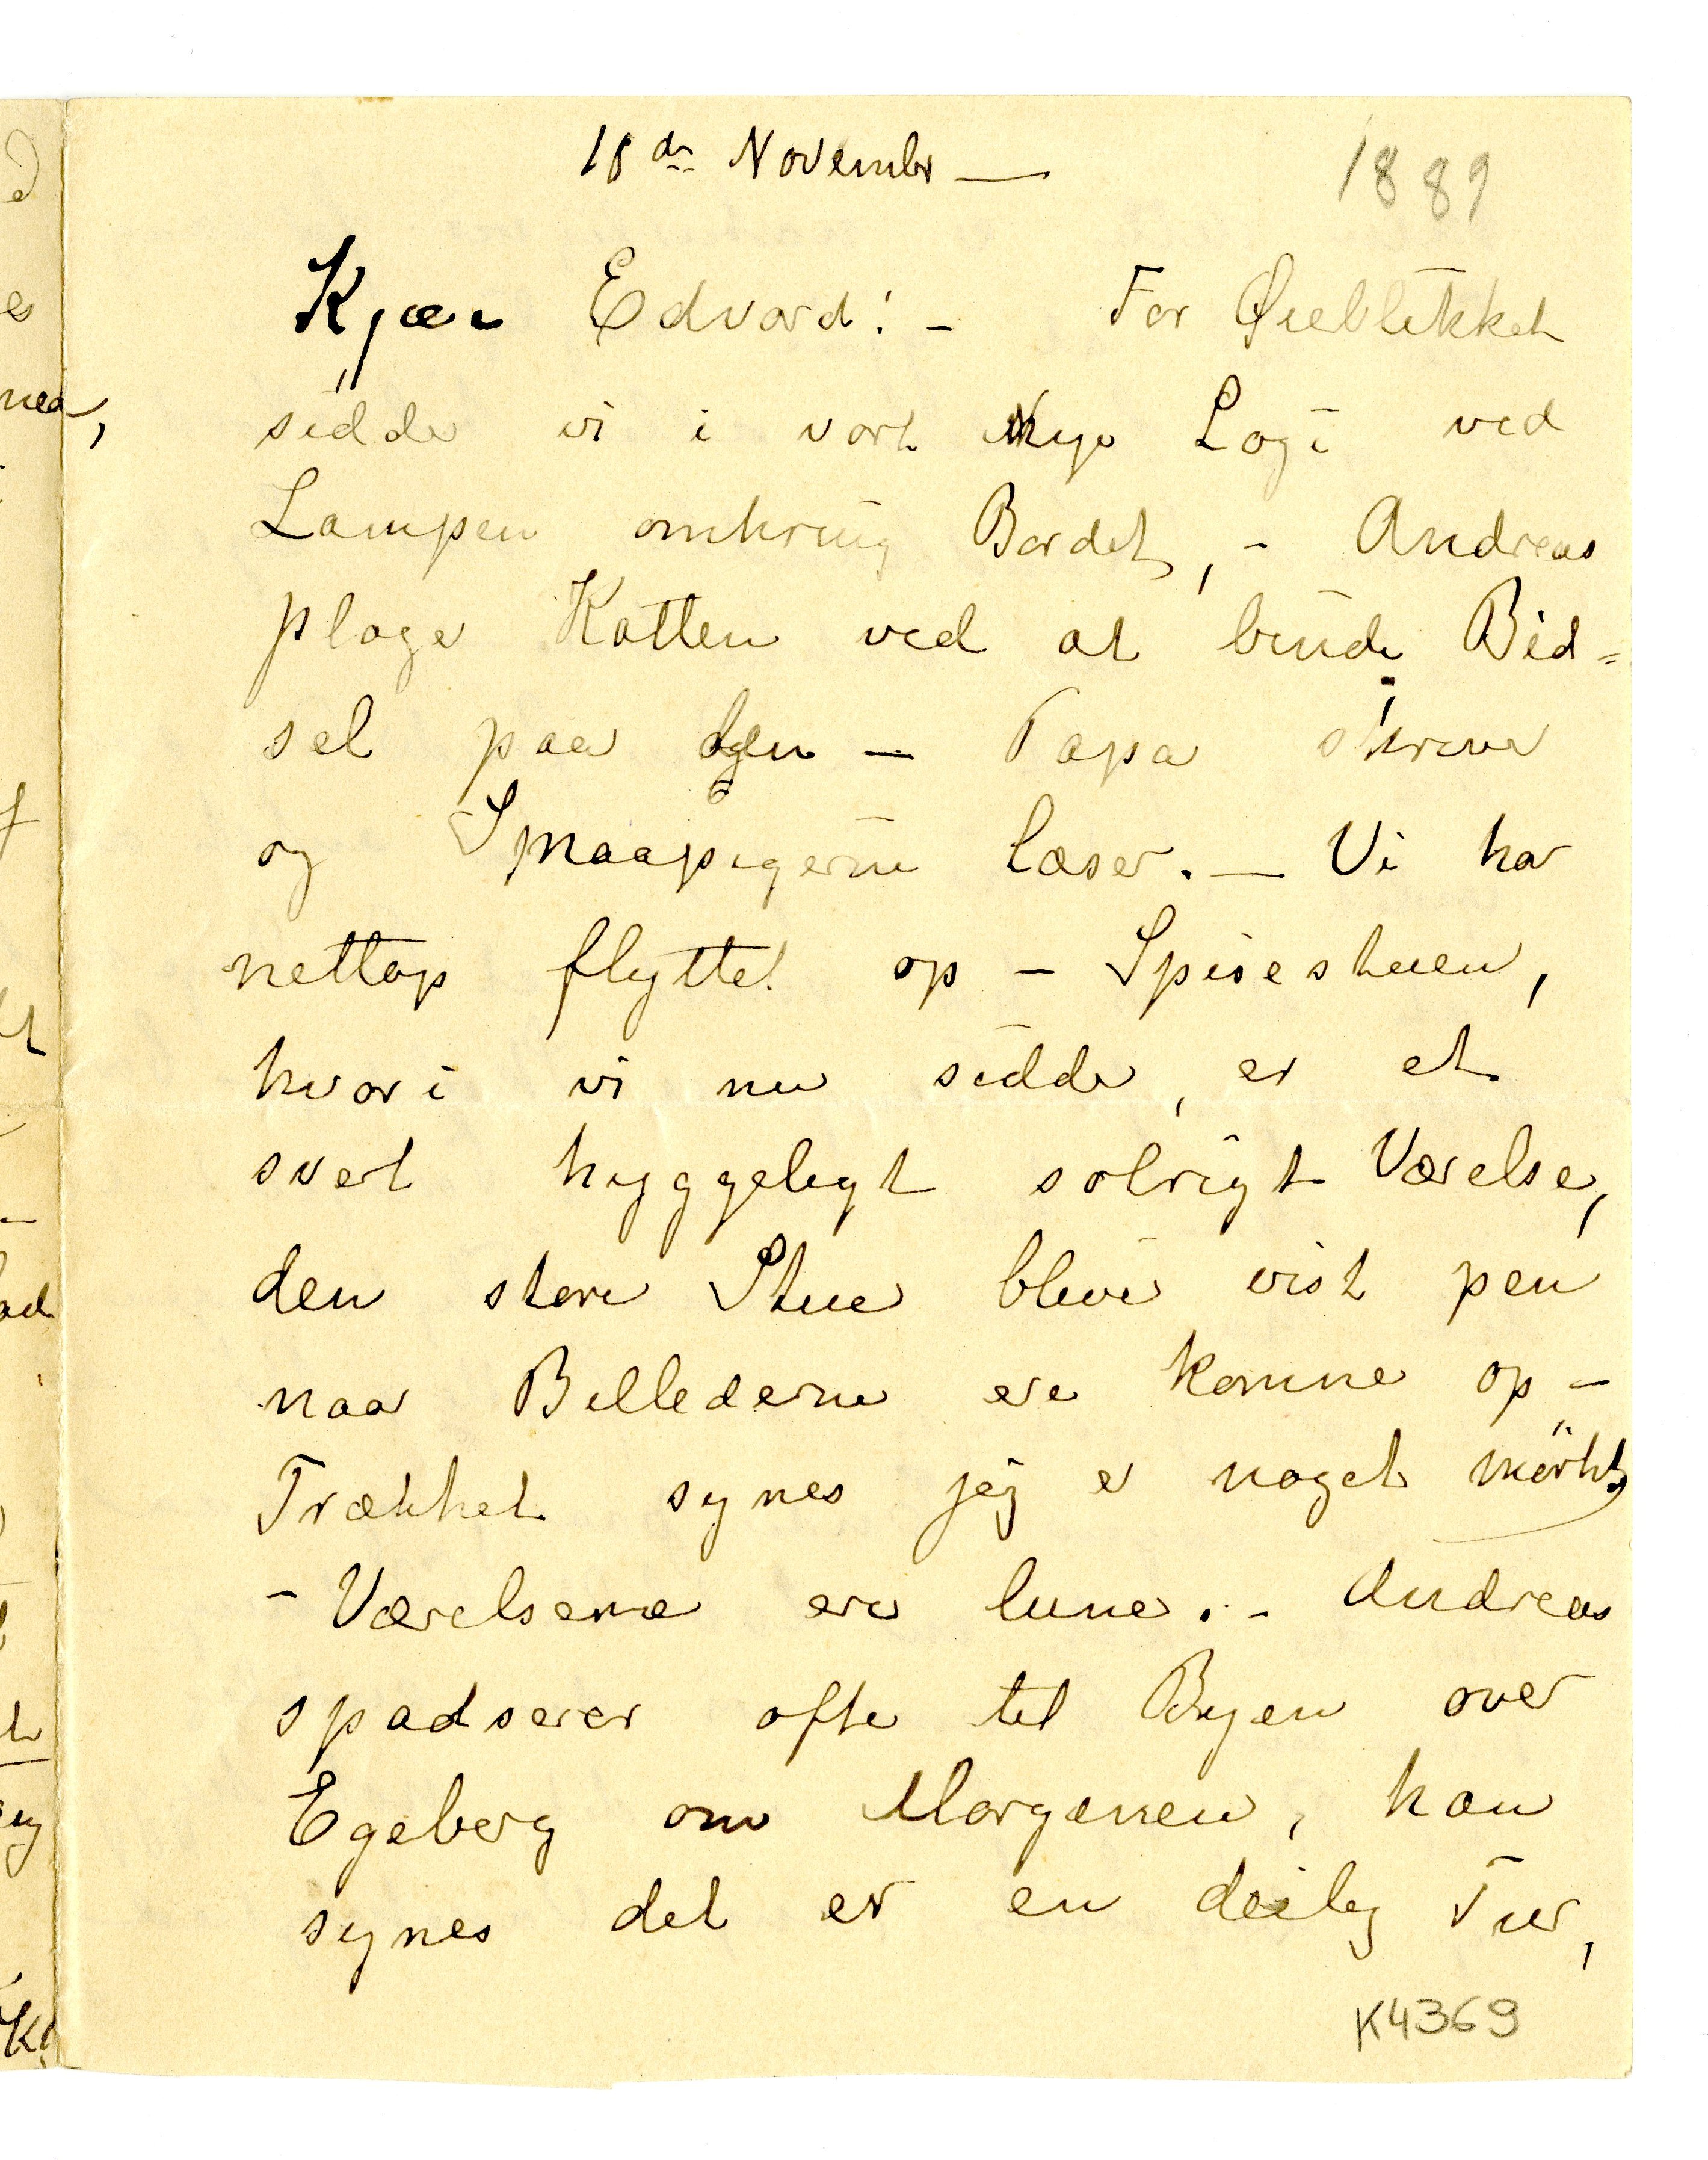 18de Novembr —
1889
Kjære Edvard! – For Øieblikket
sidde vi i vort Nye Logi ved
Lampen omkring Bordet, – Andreas
plage Katten ved at binde Bid=
sel paa den – Papa skriver
og Smaapigerne læser. — Vi har
nettop flyttet op – Spisestuen,
hvori vi nu sidde, er et
svert hyggeligt solrigt Værelse,
den store Stue blive vist pen
naar Billederne ere komne op –
Trækket synes jeg er noget mörkt,
– Værelserne ere lune. – Andreas
spadserer ofte til Byen over
Egeberg om Morgenen, han
synes det er en deilig Tur,
K4369